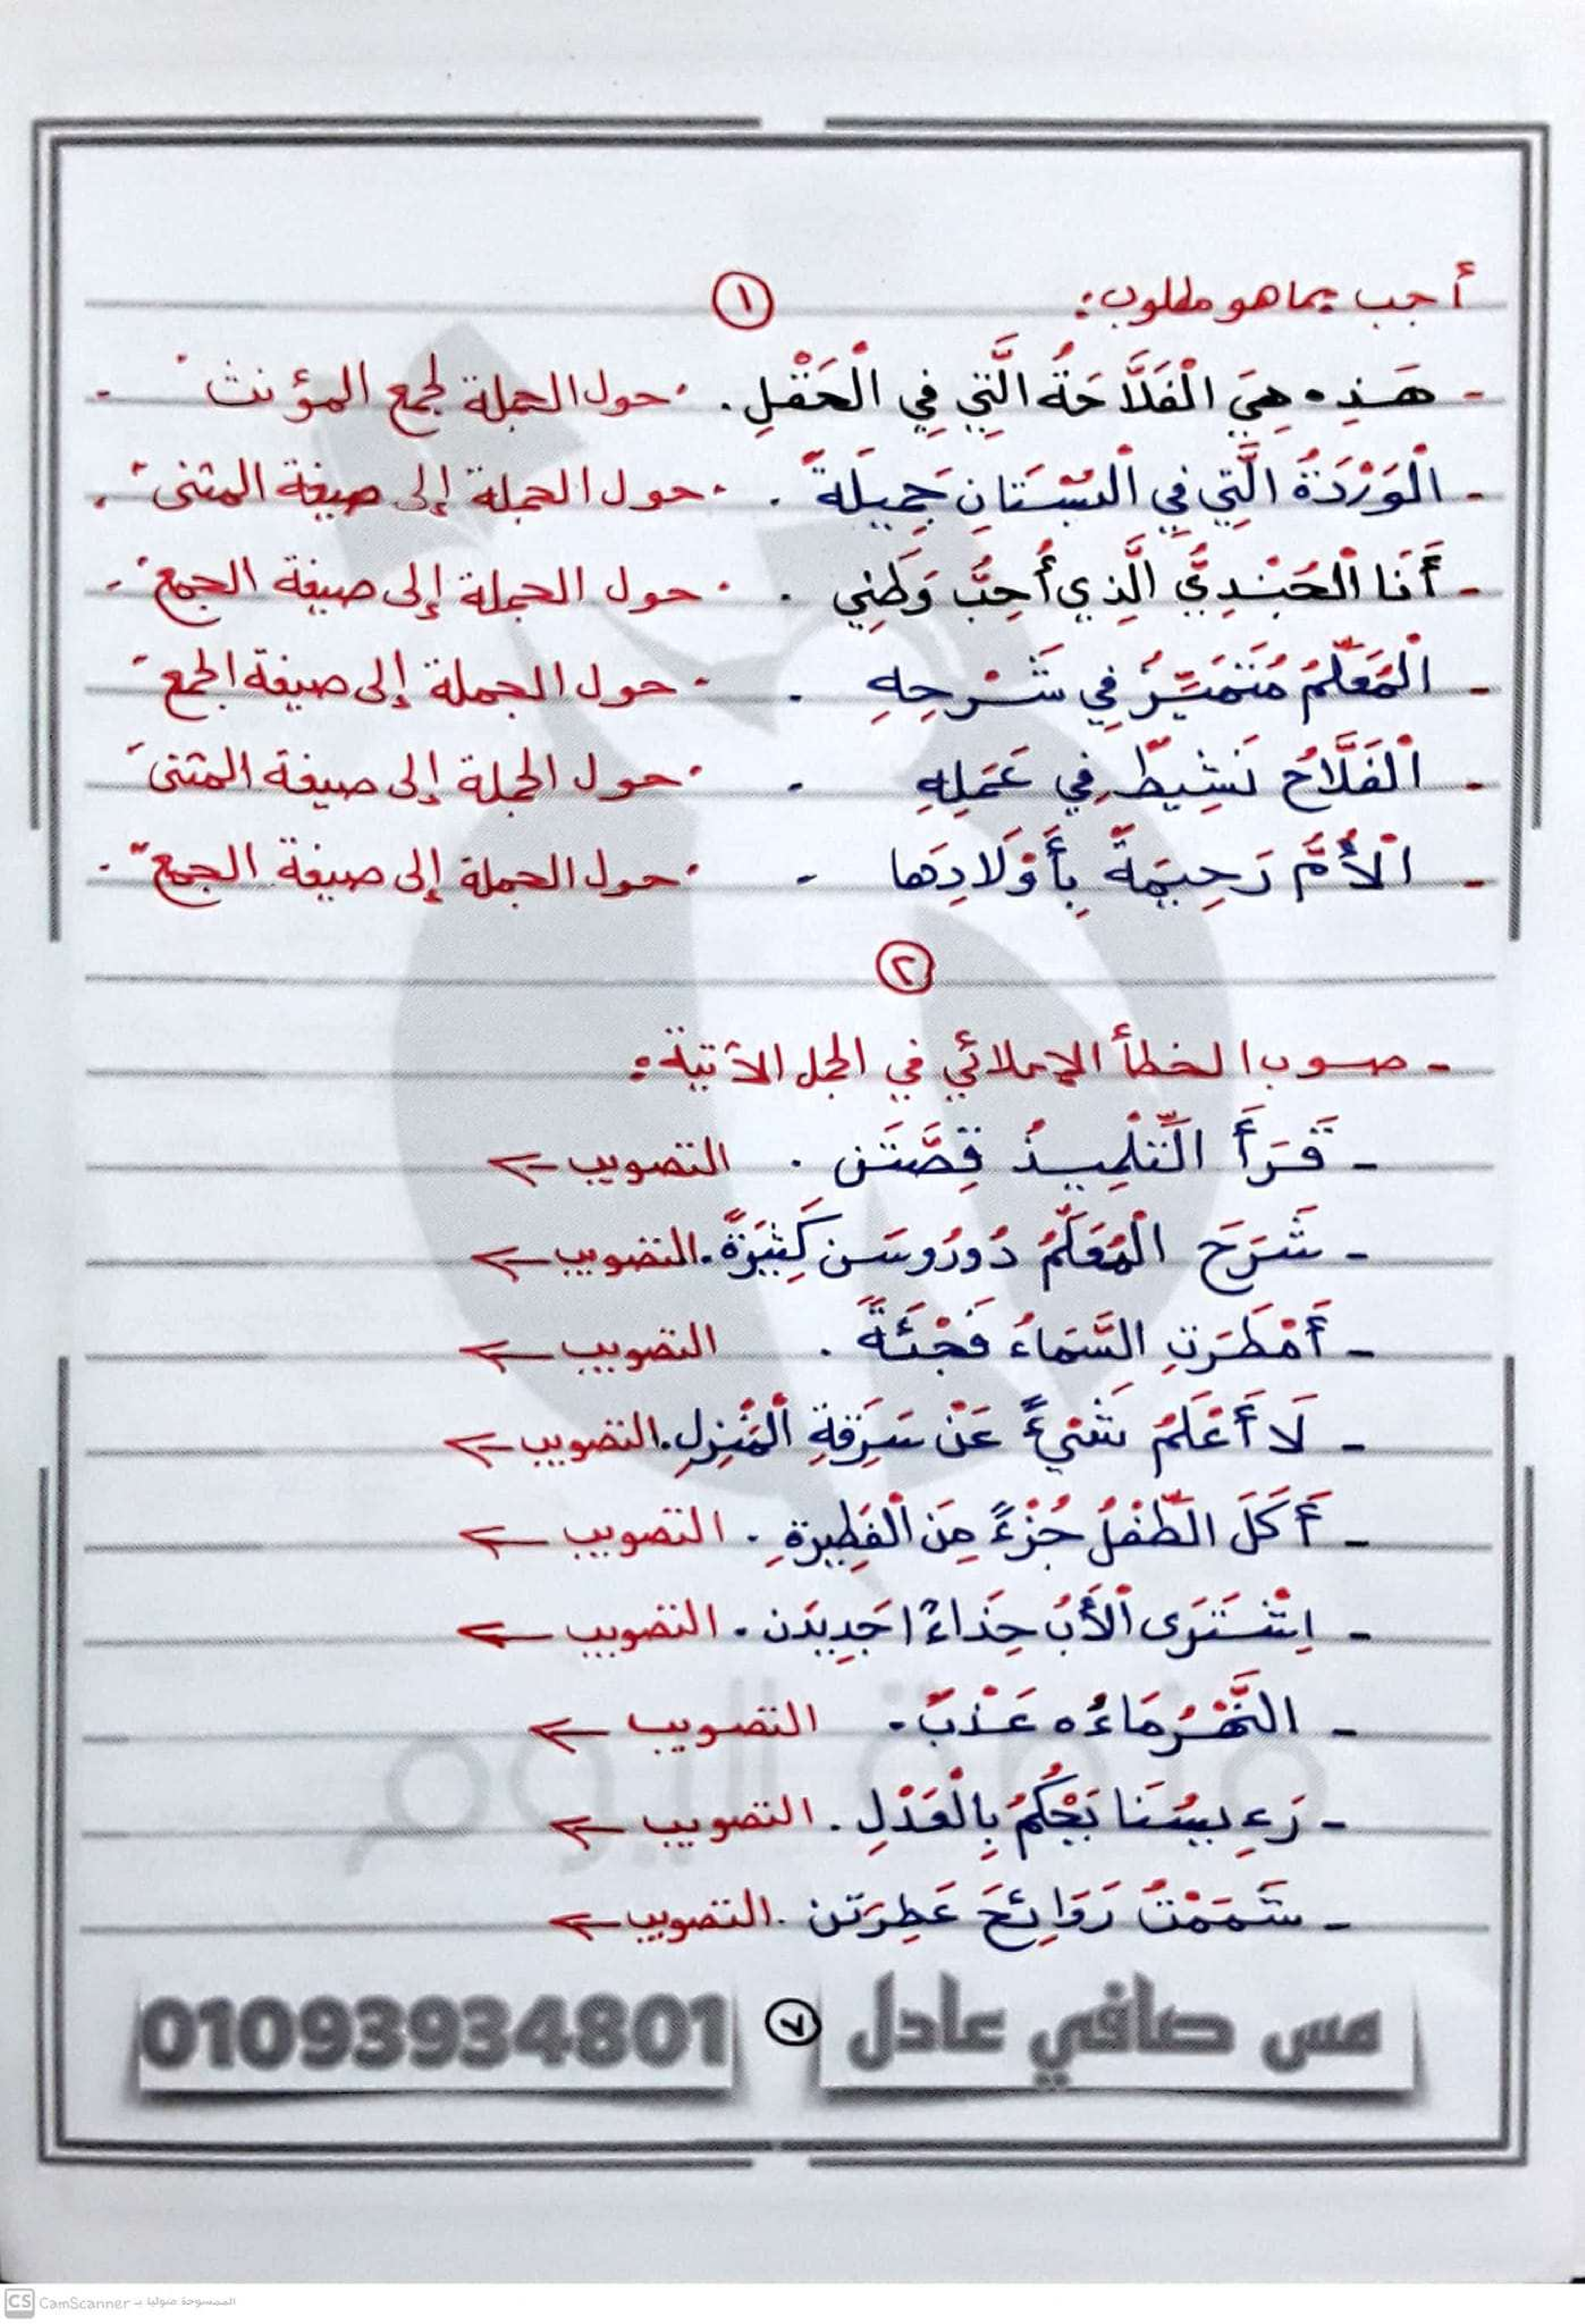 أجب بما هو مطلوب:
١
- هَذِه هِيَ الْفَلَّاحَةُ الَّتِي فِي الْحَقْلِ. "حول الجملة لجمع المؤنث" -
- الْوَرْدَةُ الَّتِي فِي الْبُسْتَانِ جَمِيلَةٌ. "حول الجملة إلى صيغة المثنى".
- أَنَا الْجُنْدِيُّ الَّذِي أُحِبُّ وَطَنِي. "حول الجملة إلى صيغة الجمع" -
- الْمُعَلِّمُ مُتَمَيِّزٌ فِي شَرْحِهِ. "حول الجملة إلى صيغة الجمع"
- الْفَلَّاحُ نَشِيطٌ فِي عَمَلِهِ - "حول الجملة إلى صيغة المثنى"
- الْأُمُّ رَحِيمَةٌ بِأَوْلَادِهَا - "حول الجملة إلى صيغة الجمع".
٢
- صوب الخطأ الإملائي في الجمل الآتية:
- قَرَأَ التِّلْمِيذُ قِصَّتَن. التصويب ←
- شَرَحَ الْمُعَلِّمُ دُورُوسَن كَثِيرَةً. التصويب ←
- أَمْطَرَتِ السَّمَاءُ فَجْئَةً. التصويب ←
- لَا أَعْلَمُ شَيْءً عَنْ سَرِقَةِ الْمَنْزِلِ. التصويب ←
- أَكَلَ الطِّفْلُ جُزْءً مِنَ الْفَطِيرَةِ. التصويب ←
- اِشْتَرَى الْأَبُ حِذَاءًا جَدِيدَن. التصويب ←
- النَّهْرُ مَاءُه عَذْبٌ. التصويب ←
- رَءِيسُنَا يَحْكُمُ بِالْعَدْلِ. التصويب ←
- شَمَمْتُ رَوَائِحَ عَطِرَتَن. التصويب ←
مس صافي عادل ٧ 01093934801
CS CamScanner الممسوحة ضوئيا بـ